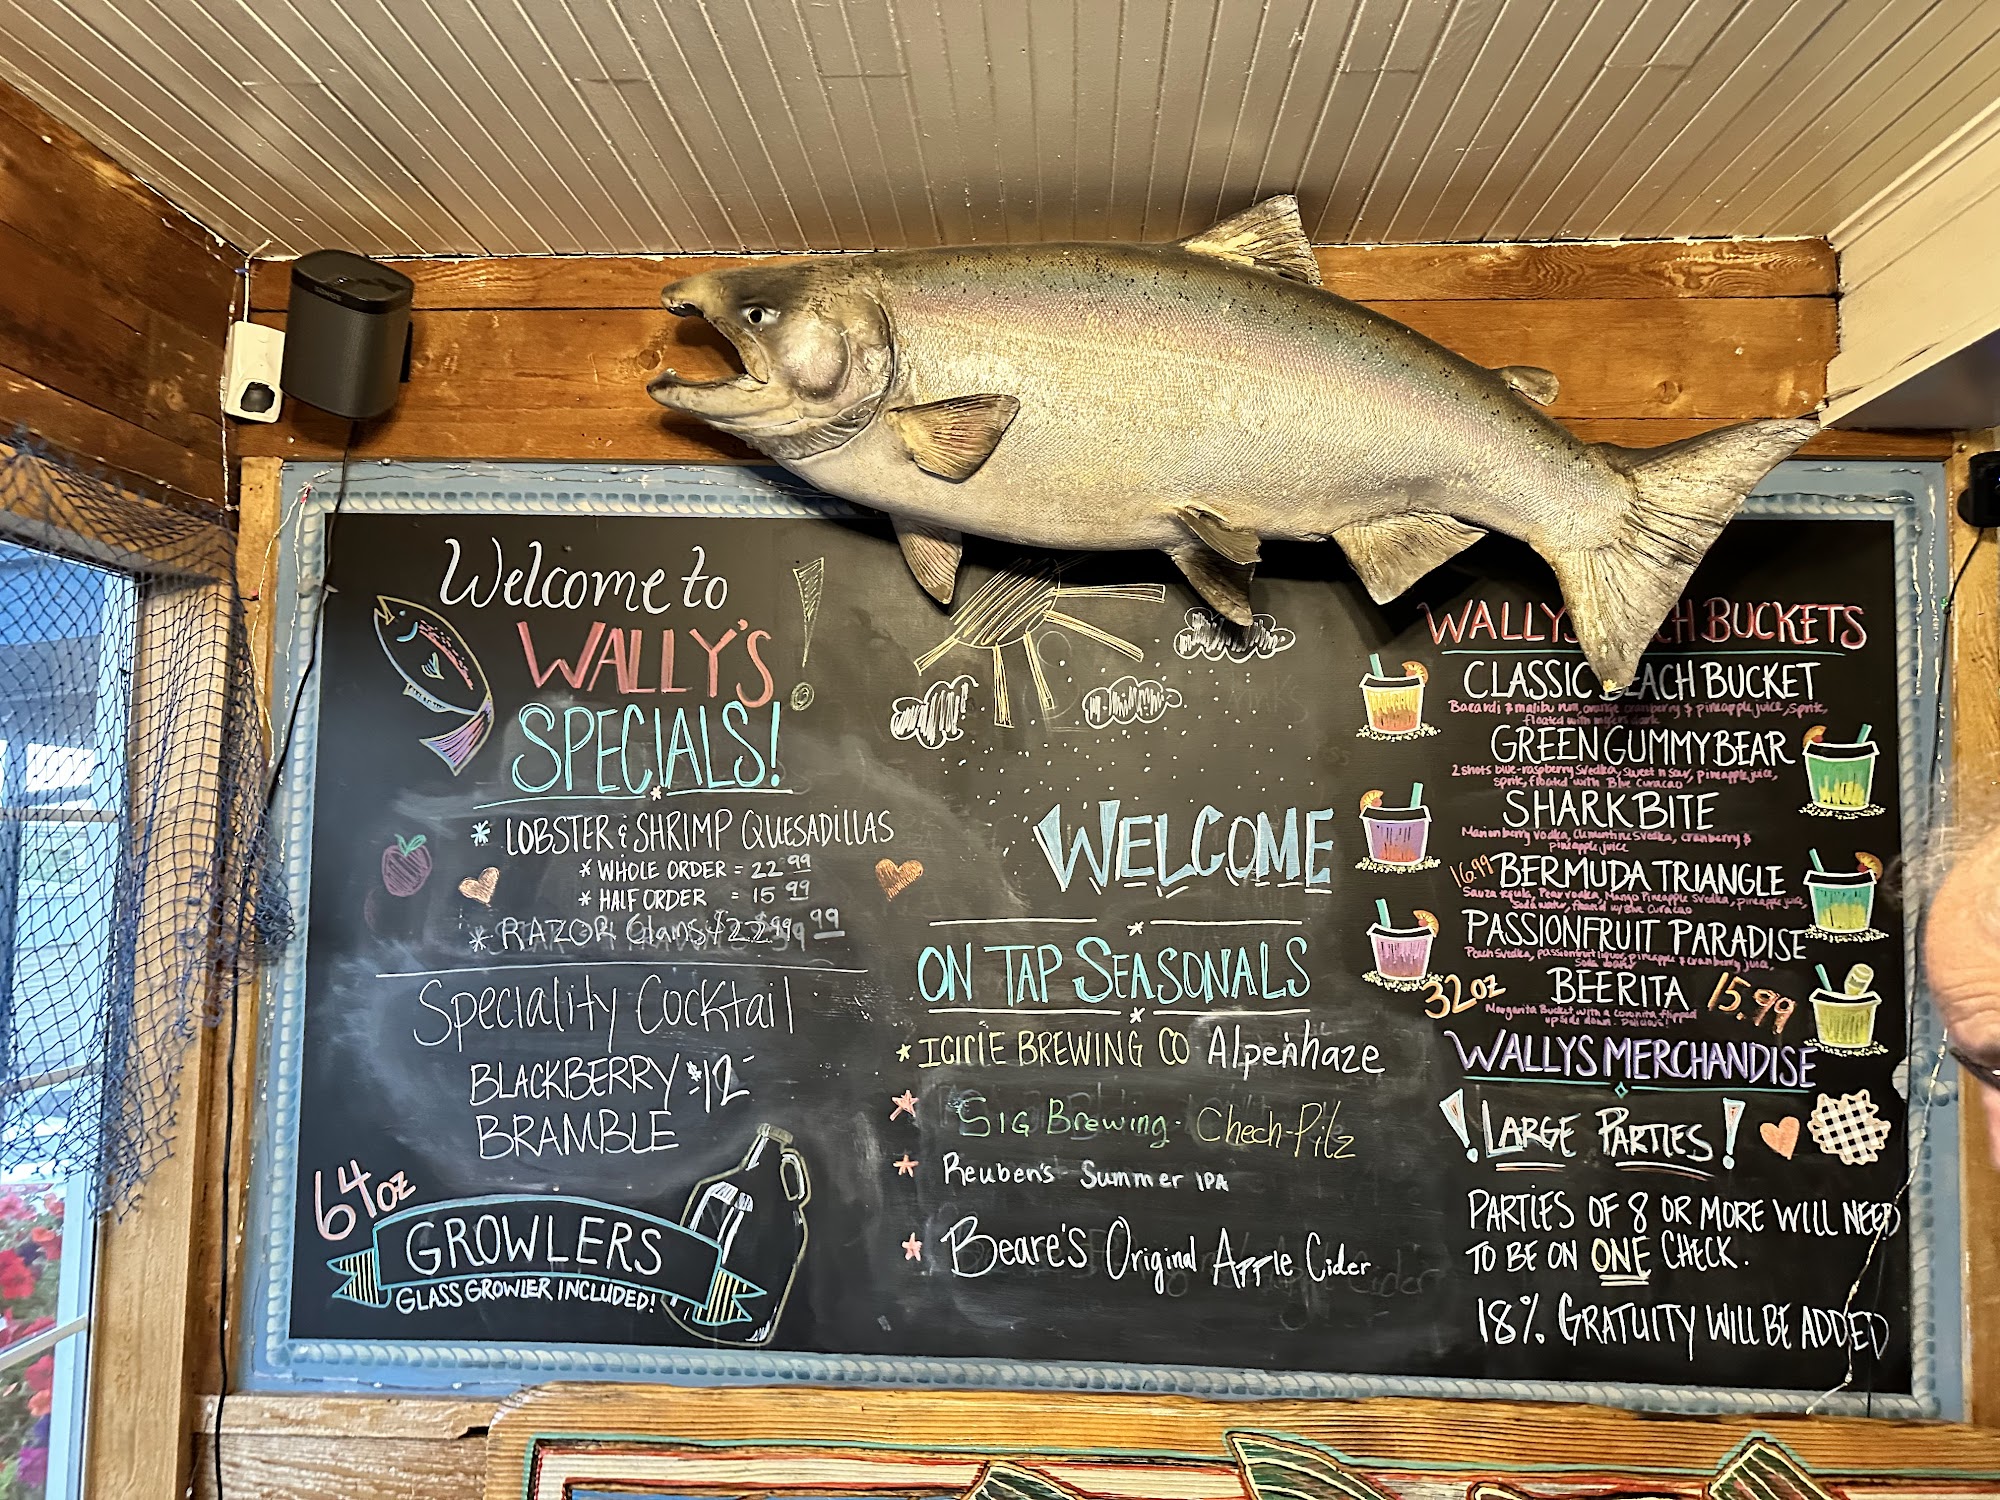 SONOS
Welcome to
WALLY'S
SPECIALS!
* LOBSTER & SHRIMP QUESADILLAS
* WHOLE ORDER = 22 99
* HALF ORDER = 15 99
* RAZOR Clams $22 99
Speciality Cocktail
BLACKBERRY $12
BRAMBLE
64oz
GROWLERS
GLASS GROWLER INCLUDED!
WELCOME
ON TAP SEASONALS
* ICICLE BREWING CO Alpenhaze
SIG Brewing - Chech-Pilz
Reuben's - Summer IPA
Beare's Original Apple Cider
WALLYS BUCKETS
CLASSIC BEACH BUCKET
Bacardi & malibu rum, orange cranberry & pineapple juice, sprite,
floated with myers dark
GREEN GUMMY BEAR
2 shots blue-raspberry Svedka, sweet n sour, pineapple juice,
sprite, floated with Blue Curacao
SHARK BITE
Marionberry Vodka, Clementine Svedka, cranberry &
pineapple juice
16.99 BERMUDA TRIANGLE
Sauza tequila, Pear vodka, Mango Pineapple Svedka, pineapple juice,
Soda water, floated w/ Blue Curacao
PASSIONFRUIT PARADISE
Peach Svedka, passionfruit liquor, pineapple & cranberry juice,
Soda water
32oz BEERITA 15.99
Margarita Bucket with a coronita flipped
upside down. Delicious!
WALLYS MERCHANDISE
! LARGE PARTIES !
PARTIES OF 8 OR MORE WILL NEED
TO BE ON ONE CHECK.
18% GRATUITY WILL BE ADDED